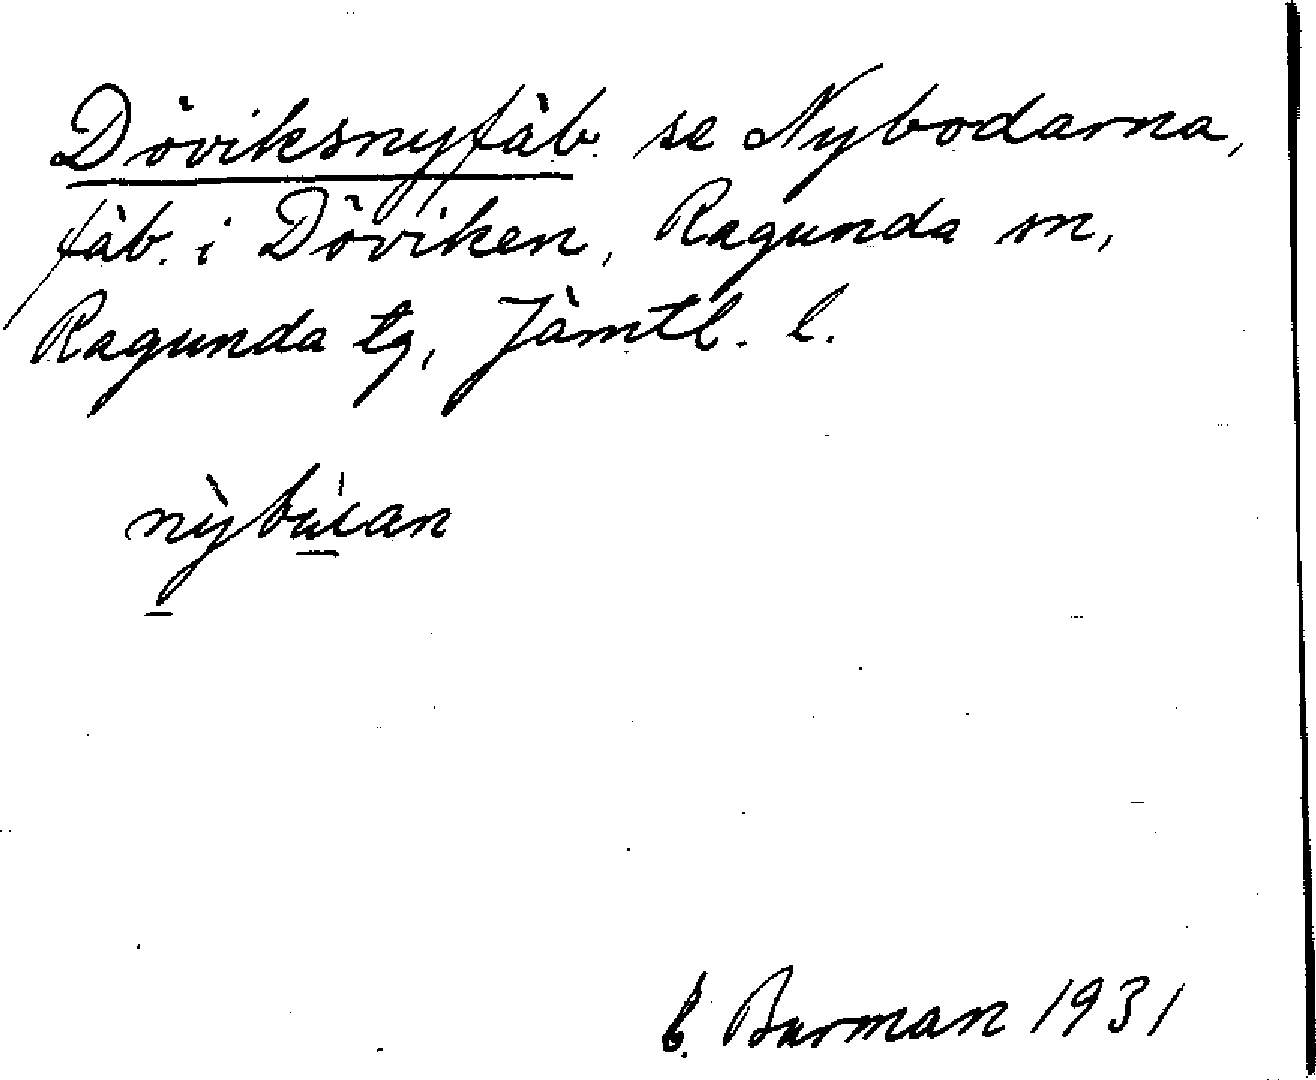 Döviksnyfäb. se Nybodarna,
fäb. i Döviken, Ragunda sn,
Ragunda tg, Jämtl. l.
E. Burman 1931